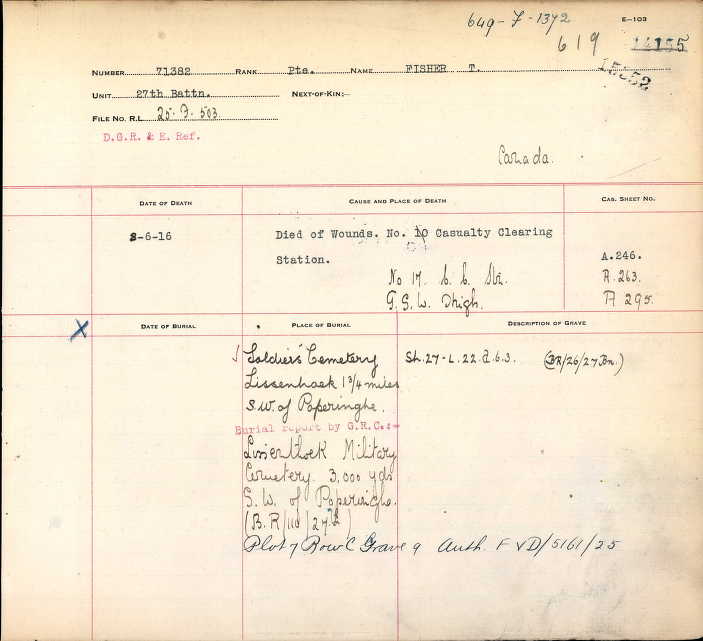 649-F-1372
E-103
619 14155
15552
NUMBER 71382 RANK Pte. NAME FISHER T.
UNIT 27th Battn. NEXT-OF-KIN:—
FILE No. R.L. 25-F-503
D.G.R. & E. Ref.
Canada.
DATE OF DEATH CAUSE AND PLACE OF DEATH CAS. SHEET NO.
8-6-16 Died of Wounds. No. 10 Casualty Clearing
Station. A.246.
No 17. C. C. Stn. A.263.
G.S.W. Thigh. A 295.
X DATE OF BURIAL PLACE OF BURIAL DESCRIPTION OF GRAVE
Soldiers' Cemetery Sh.27-L.22.d.6.3. (BR/26/27Bn.)
Lissenhoek 1 3/4 miles
S.W. of Poperinghe.
Burial report by G.R.C.:-
Lissenthoek Military
Cemetery. 3,000 yds
S.W. of Poperinghe.
(B.R/110/27th)
Plot 7 Row C Grave 9 Auth. F V D/5161/25